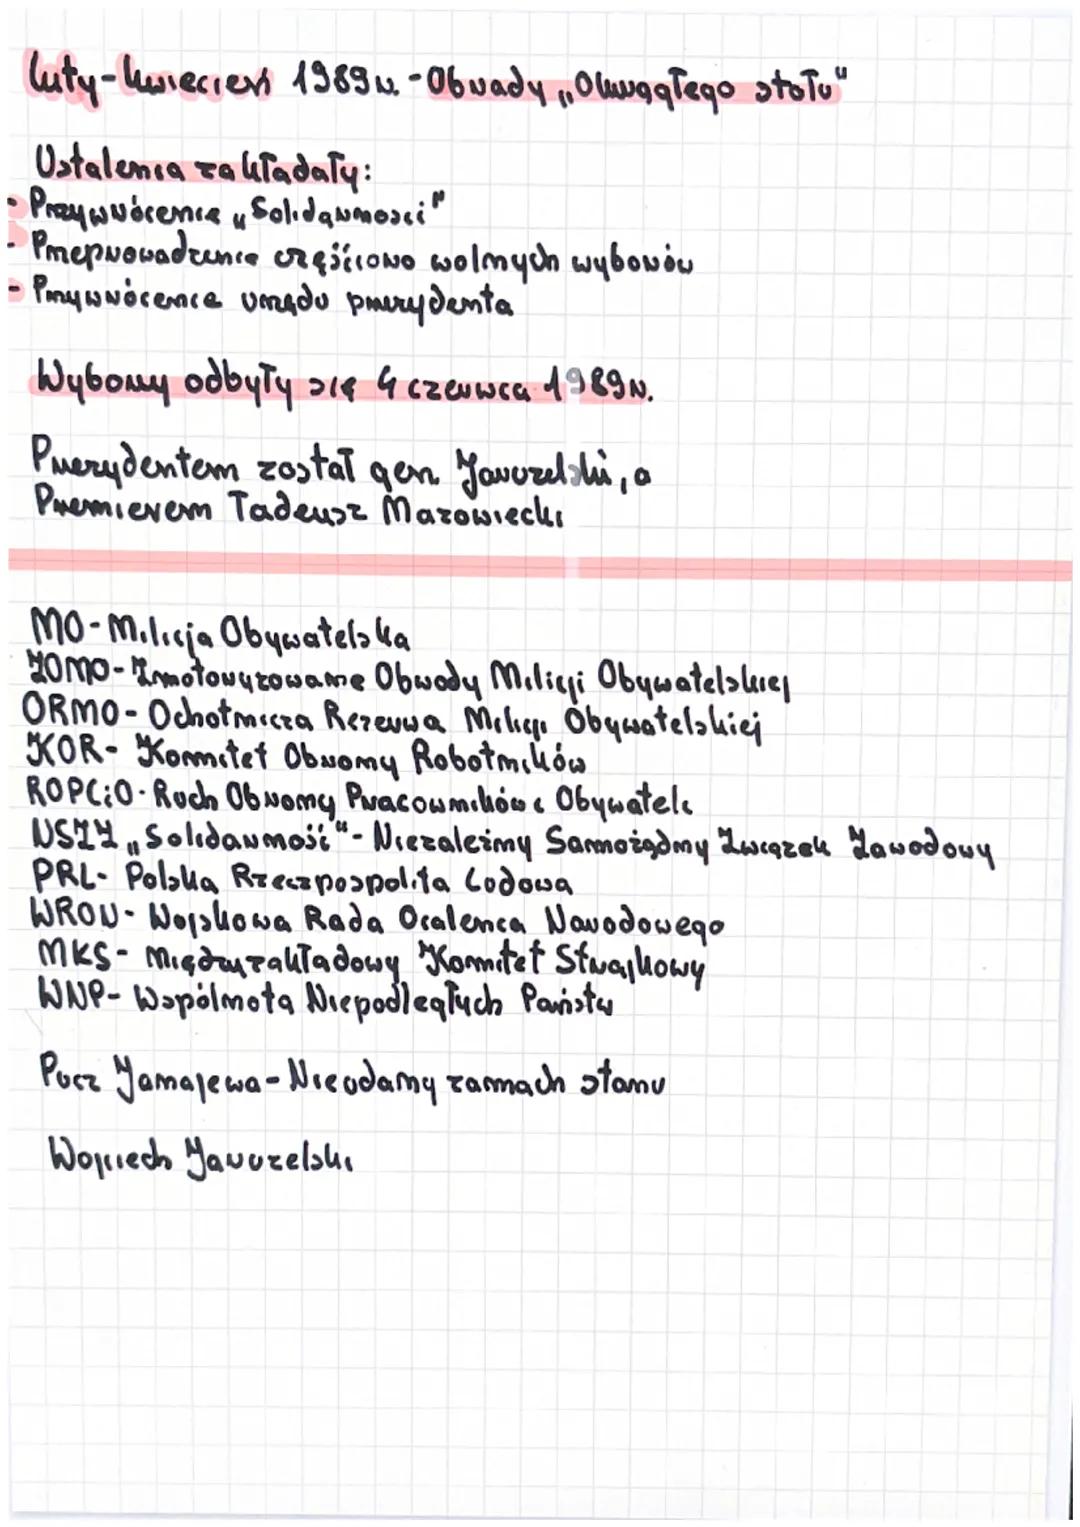 Luty-kwiecień 1989r. - Obrady „Okrągłego stołu"
Ustalenia zakładały:
- Przywrócenie „Solidarności"
- Przeprowadzenie częściowo wolnych wyborów
- Przywrócenie urzędu prezydenta
Wybory odbyły się 4 czerwca 1989r.
Prezydentem został gen. Jaruzelski, a
Premierem Tadeusz Mazowiecki
MO - Milicja Obywatelska
ZOMO - Zmotoryzowane Obwody Milicji Obywatelskiej
ORMO - Ochotnicza Rezerwa Milicji Obywatelskiej
KOR - Komitet Obrony Robotników
ROPCiO - Ruch Obrony Pracowników i Obywateli
NSZZ „Solidarność" - Niezależny Samorządny Związek Zawodowy
PRL - Polska Rzeczpospolita Ludowa
WRON - Wojskowa Rada Ocalenia Narodowego
MKS - Międzyzakładowy Komitet Strajkowy
WNP - Wspólnota Niepodległych Państw
Pucz Janajewa - Nieudany zamach stanu
Wojciech Jaruzelski